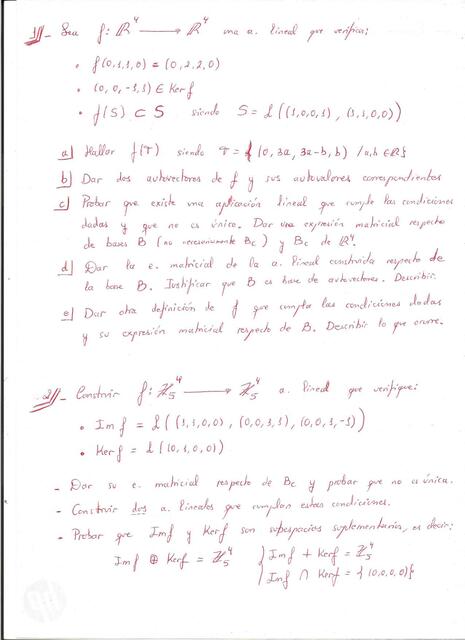 1//- Sea f: ℝ⁴ → ℝ⁴ una a. lineal que verifica:
• f(0,1,1,0) = (0,2,2,0)
• (0,0,-1,1) ∈ Ker f
• f(S) ⊂ S siendo S = L((1,0,0,1), (1,1,0,0))
a) Hallar f(T) siendo T = { (0, 3a, 3a-b, b) / a,b ∈ ℝ}
b) Dar dos autovectores de f y sus autovalores correspondientes
c) Probar que existe una aplicación lineal que cumple las condiciones
dadas y que no es único. Dar una expresión matricial respecto
de bases B (no necesariamente Bc) y Bc de ℝ⁴.
d) Dar la e. matricial de la a. lineal construida respecto de
la base B. Justificar que B es base de autovectores. Describir.
e) Dar otra definición de f que cumpla las condiciones dadas
y su expresión matricial respecto de B. Describir lo que ocurre.
2//- Construir f: ℤ₅⁴ → ℤ₅⁴ a. lineal que verifique:
• Im f = L((1,1,0,0), (0,0,1,1), (0,0,1,-1))
• Ker f = L((0,1,0,0))
- Dar su e. matricial respecto de Bc y probar que no es única.
- Construir dos a. lineales que cumplan estas condiciones.
- Probar que Im f y Ker f son subespacios suplementarios, es decir:
Im f ⊕ Ker f = ℤ₅⁴ { Im f + Ker f = ℤ₅⁴
Im f ∩ Ker f = {(0,0,0,0)}
hp